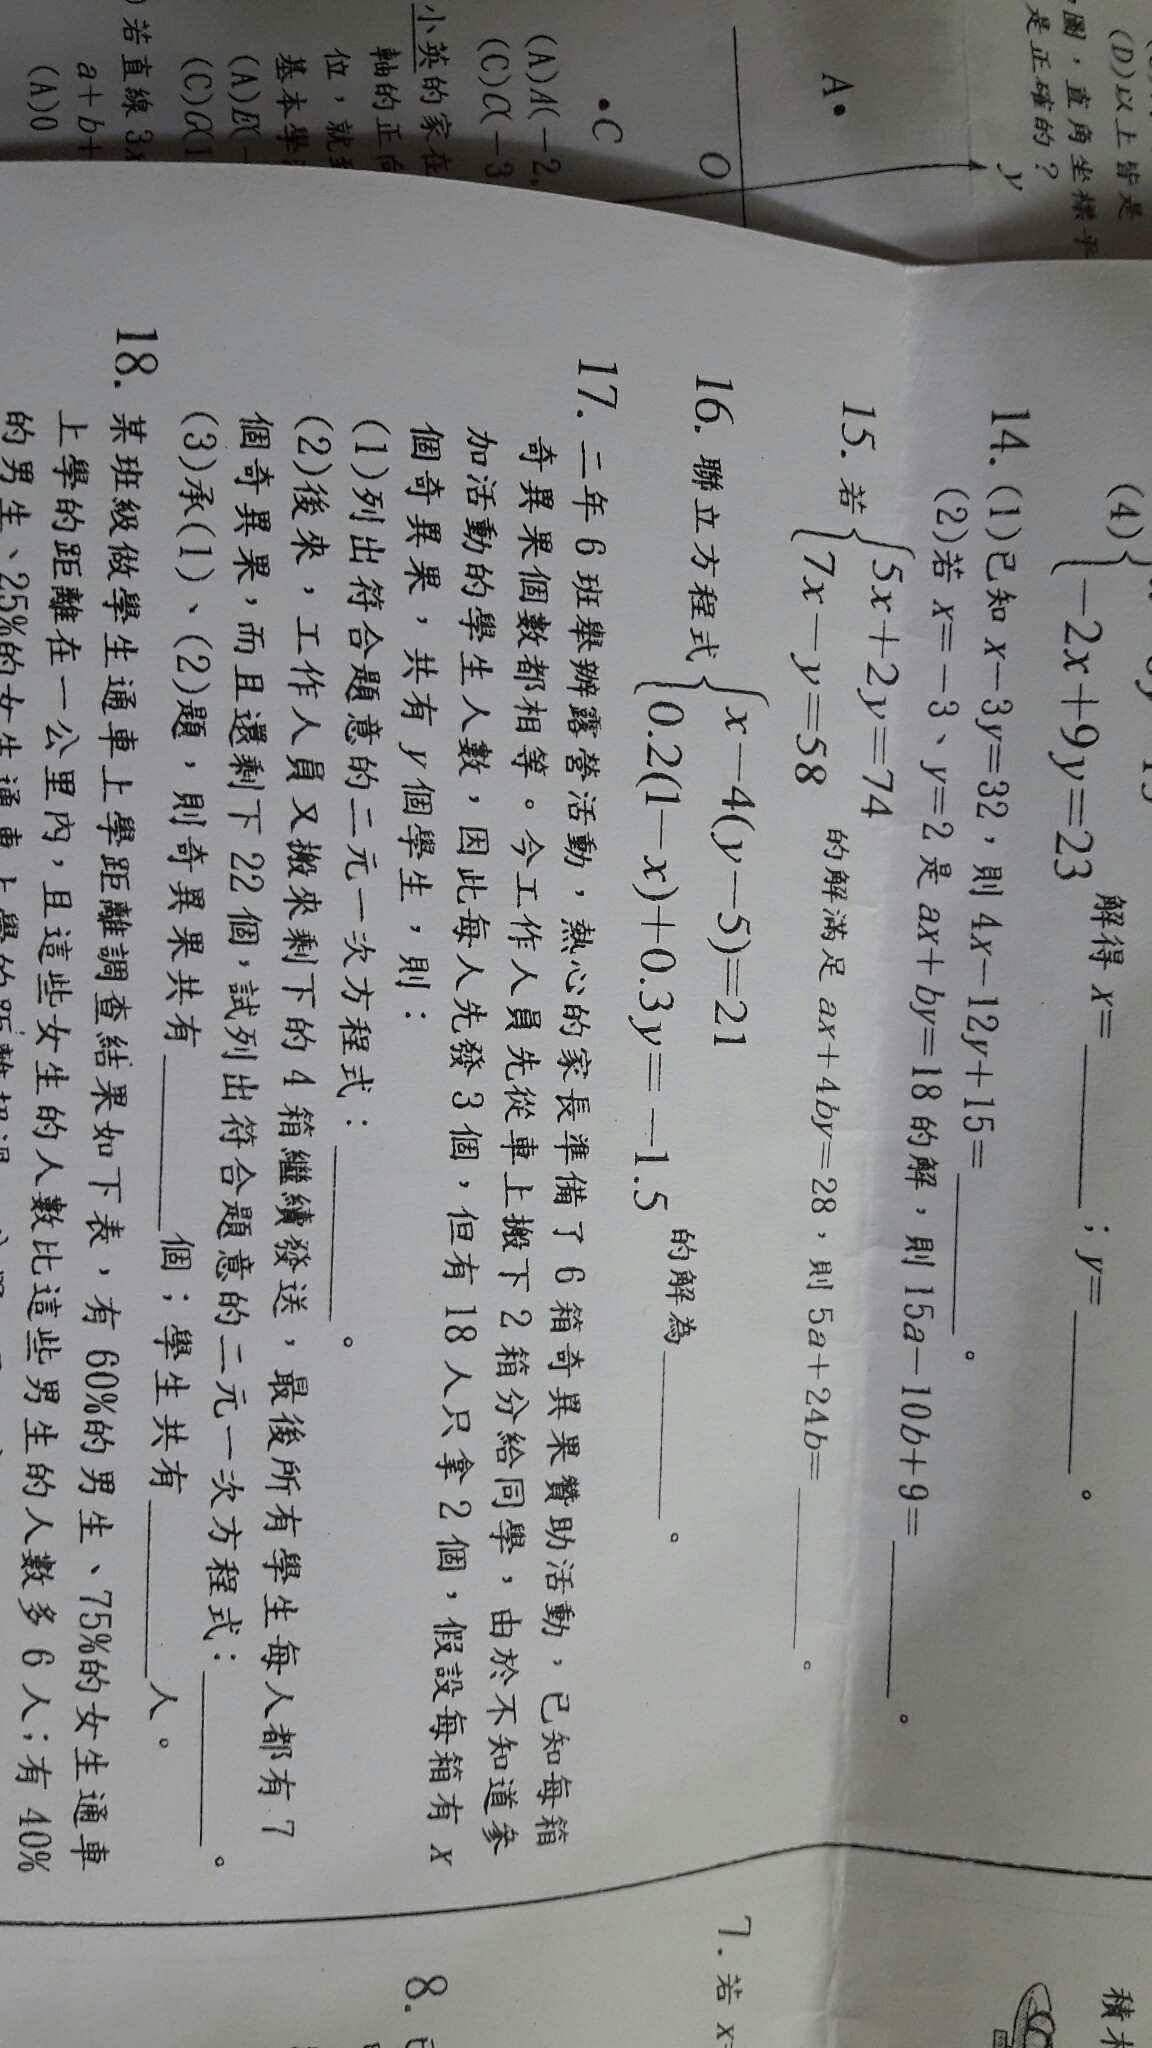 (D)以上皆是
圖，直角坐標平
是正確的？
y
A
O
C
(A)A(-2,
(C)C(-3
小英的家在
軸的正向
位，就
基本學
(A)B(-
(C)C(1
若直線 3x
a+b+
(A)0
(4){-2x+9y=23 解得 x=______；y=______。
14. (1)已知 x-3y=32，則 4x-12y+15=______。
(2)若 x=-3、y=2 是 ax+by=18 的解，則 15a-10b+9=______。
15. 若{5x+2y=74
7x-y=58 的解滿足 ax+4by=28，則 5a+24b=______。
16. 聯立方程式{x-4(y-5)=21
0.2(1-x)+0.3y=-1.5 的解為______。
17. 二年 6 班舉辦露營活動，熱心的家長準備了 6 箱奇異果贊助活動，已知每箱
奇異果個數都相等。今工作人員先從車上搬下 2 箱分給同學，由於不知道參
加活動的學生人數，因此每人先發 3 個，但有 18 人只拿 2 個，假設每箱有 x
個奇異果，共有 y 個學生，則：
(1)列出符合題意的二元一次方程式：______。
(2)後來，工作人員又搬來剩下的 4 箱繼續發送，最後所有學生每人都有 7
個奇異果，而且還剩下 22 個，試列出符合題意的二元一次方程式：______。
(3)承(1)、(2)題，則奇異果共有______個；學生共有______人。
18. 某班級做學生通車上學距離調查結果如下表，有 60%的男生、75%的女生通車
上學的距離在一公里內，且這些女生的人數比這些男生的人數多 6 人；有 40%
的男生、25%的女生通車上學的距離超過
7. 若 x=
8.
積木